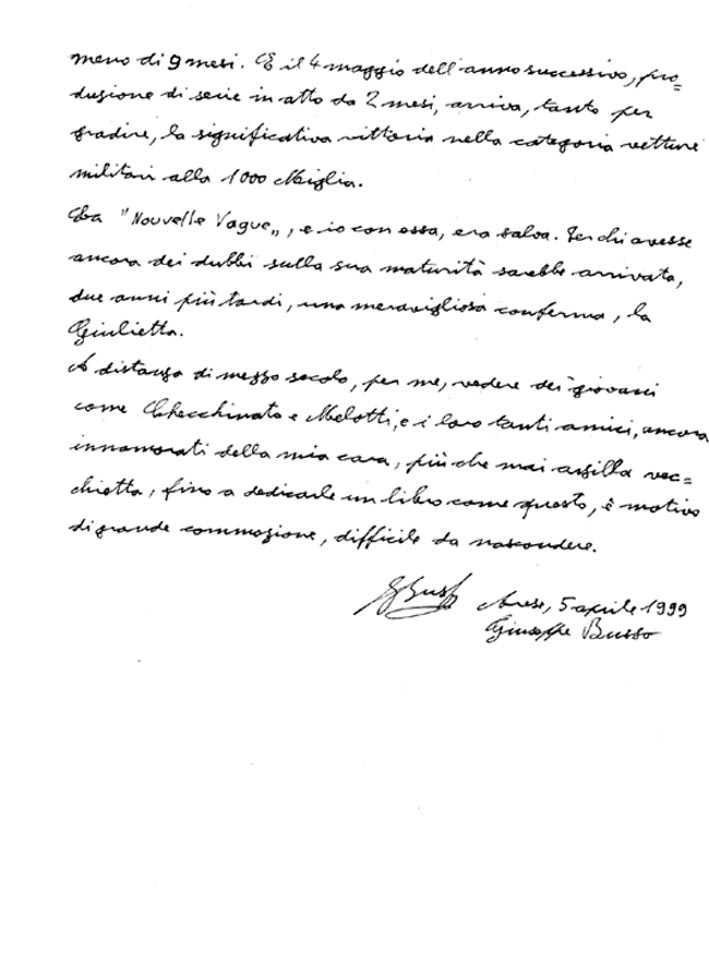 meno di 9 mesi. E il 4 maggio dell'anno successivo, pro=
duzione di serie in atto da 2 mesi, arriva, tanto per
gradire, la significativa vittoria nella categoria vetture
militari alla 1000 Miglia.
La "Nouvelle Vague", e io con essa, era salva. Per chi avesse
ancora dei dubbi sulla sua maturità sarebbe arrivata,
due anni più tardi, una meravigliosa conferma, la
Giulietta.
A distanza di mezzo secolo, per me, vedere dei giovani
come Checchinato e Melotti, e i loro tanti amici, ancora
innamorati della mia cara, più che mai arzilla vec=
chietta, fino a dedicarle un libro come questo, è motivo
di grande commozione, difficile da nascondere.
GBusso Arese, 5 aprile 1999
Giuseppe Busso